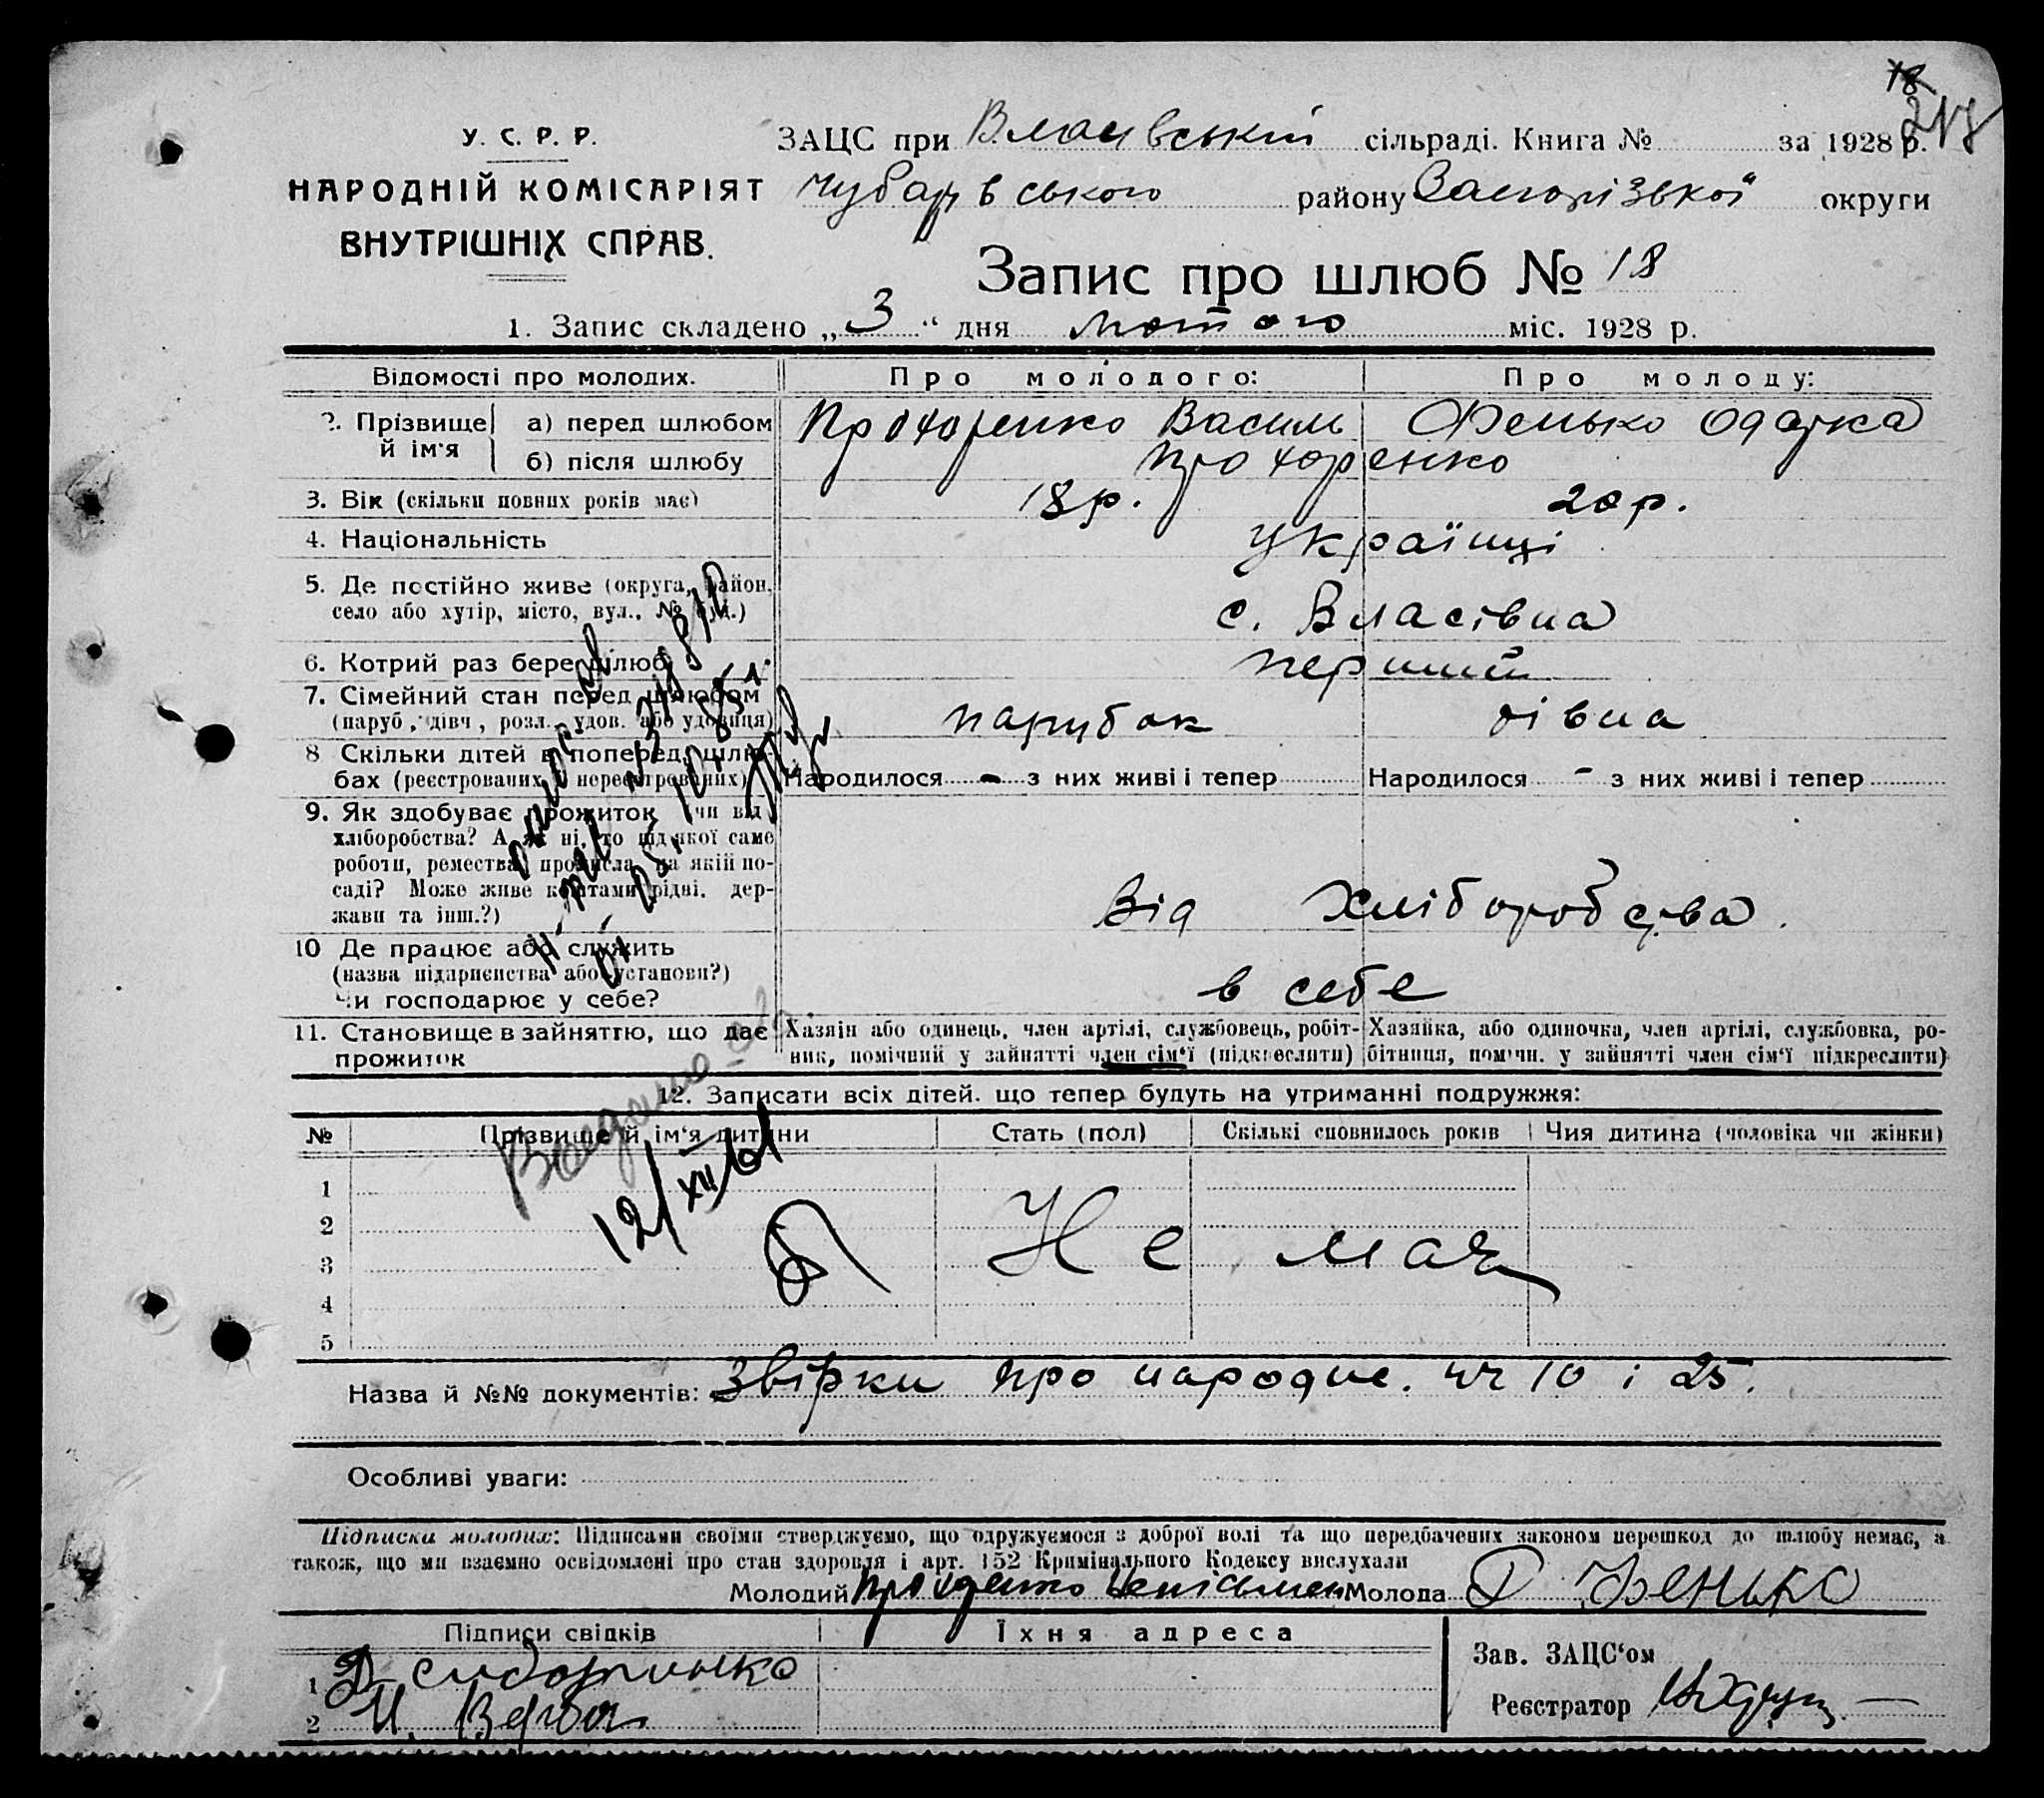 18
218
У. С. Р. Р.
НАРОДНІЙ КОМІСАРІЯТ
ВНУТРІШНІХ СПРАВ.
ЗАЦС при Власівській сільраді. Книга № за 1928 р.
Чубарівського району Запорізької округи
Запис про шлюб № 18
1. Запис складено „3“ дня лютого міс. 1928 р.
Відомості про молодих. Про молодого: Про молоду:
2. Прізвище й ім'я а) перед шлюбом Прохоренко Василь Фенько Одарка
б) після шлюбу Прохоренко
3. Вік (скільки повних років має) 18 р. 20 р.
4. Національність українці
5. Де постійно живе (округа, район,
село або хутір, місто, вул., № буд.) с. Власівка
6. Котрий раз бере шлюб перший
7. Сімейний стан перед шлюбом
(паруб., дівч., розл., удов. або удовиця) парубок дівка
8 Скільки дітей в поперед. шлю-
бах (реєстрованих й нереєстрованих) Народилося - з них живі і тепер Народилося - з них живі і тепер
9. Як здобуває прожиток (чи від
хліборобства? А як ні, то від якої саме
роботи, ремества, промисла, на якій по-
саді? Може живе коштами рідні, дер-
жави та інш.?) Від хліборобства.
10 Де працює або служить
(назва підприємства або установи?)
Чи господарює у себе? в себе
11. Становище в зайняттю, що дає
прожиток
Хазяїн або одинець, член артілі, службовець, робіт-
ник, помічний у зайнятті член сім'ї (підкреслити)
Хазяйка, або одиночка, член артілі, службовка, ро-
бітниця, помічн. у зайнятті член сім'ї підкреслити)
12. Записати всіх дітей, що тепер будуть на утриманні подружжя:
№ Прізвище й ім'я дитини Стать (пол) Скількі сповнилось років Чия дитина (чоловіка чи жінки)
1
2
3
4
5
Не має
12/XII 61
Назва й №№ документів: Звірки про народже. чч 10 і 25.
Особливі уваги:
Підписки молодих: Підписами своїми стверджуємо, що одружуємося з доброї волі та що передбачених законом перешкод до шлюбу немає, а
також, що ми взаємно освідомлені про стан здоровля і арт. 152 Кримінального Кодексу вислухали
Молодий Прохоренко Неписьмен Молода О Фенько
Підписи свідків Їхня адреса
1
2
Зав. ЗАЦС'ом
Реєстратор